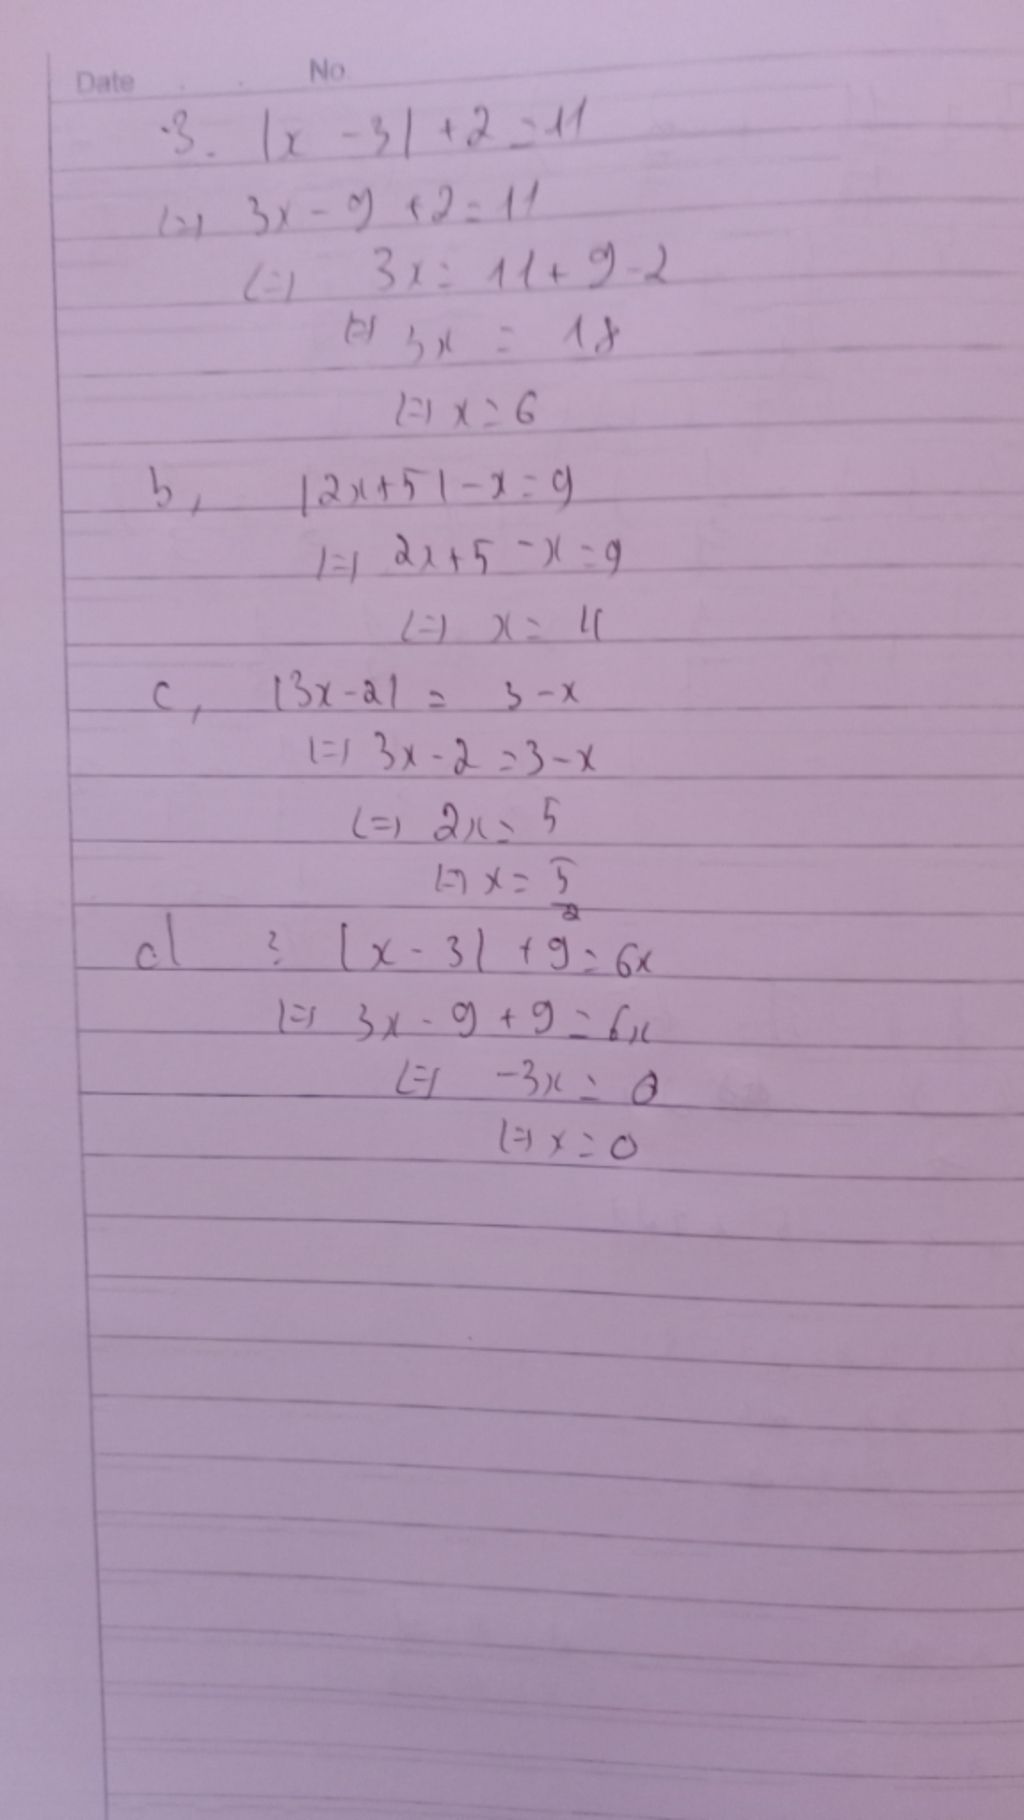 Date No
3. |x - 3| + 2 = 11
(=) 3x - 9 + 2 = 11
(=) 3x = 11 + 9 - 2
(=) 3x = 18
(=) x = 6
b, |2x+5| - x = 9
(=) 2x + 5 - x = 9
(=) x = 4
c, |3x - 2| = 3 - x
(=) 3x - 2 = 3 - x
(=) 2x = 5
(=) x = 5/2
d 3 |x - 3| + 9 = 6x
(=) 3x - 9 + 9 = 6x
(=) -3x = 0
(=) x = 0